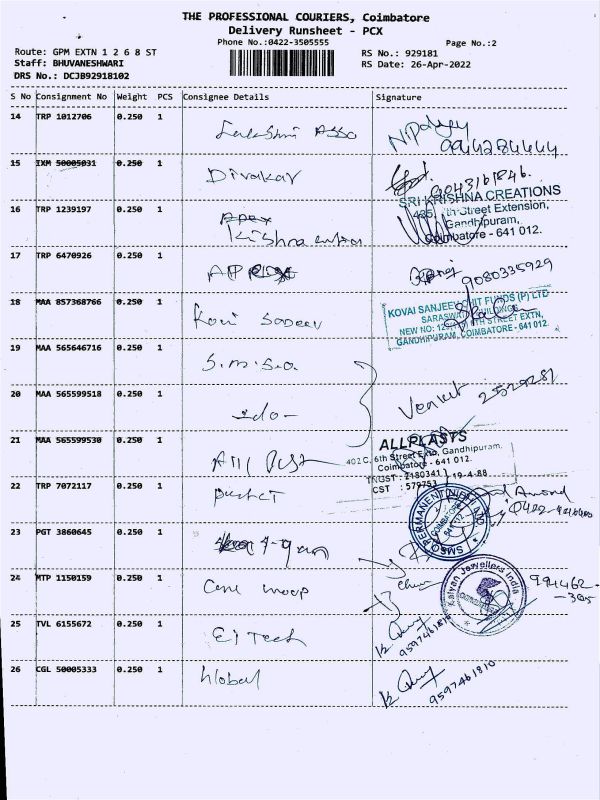 THE PROFESSIONAL COURIERS, Coimbatore
Delivery Runsheet - PCX
Phone No.:0422-3505555
Page No.:2
Route: GPM EXTN 1 2 6 8 ST
RS No.: 929181
Staff: BHUVANESHWARI
RS Date: 26-Apr-2022
DRS No.: DCJB92918102
S No Consignment No Weight PCS Consignee Details Signature
14 TRP 1012706 0.250 1
9944284444
15 IXM 50005031 0.250 1 Divakar
9043161846.
SRI KRISHNA CREATIONS
Street Extension,
16 TRP 1239197 0.250 1
Gandhipuram,
Krishna
Coimbatore - 641 012.
17 TRP 6470926 0.250 1
9080335929
18 MAA 857368766 0.250 1
KOVAI SANJEEV CHIT FUNDS (P) LTD
SARASWATHI BUILDINGS
NEW NO: 6TH STREET EXTN,
GANDHIPURAM, COIMBATORE - 641 012.
19 MAA 565646716 0.250 1 S.M.S.O
20 MAA 565599518 0.250 1 -do-
Venkat 2529281
21 MAA 565599530 0.250 1
ALLPLASTS
402 C, 6th Street Extn, Gandhipuram,
Coimbatore - 641 012.
TNGST : 2180341 19-4-88
CST : 579753
22 TRP 7072117 0.250 1
Anand
SMSO PERMANENT NIDHI
COIMBATORE
641 012
23 PGT 3860645 0.250 1
24 MTP 1150159 0.250 1
Kalyan Jewellers India
25 TVL 6155672 0.250 1 Ei Tech
9597461810
26 CGL 50005333 0.250 1 Global
9597461810